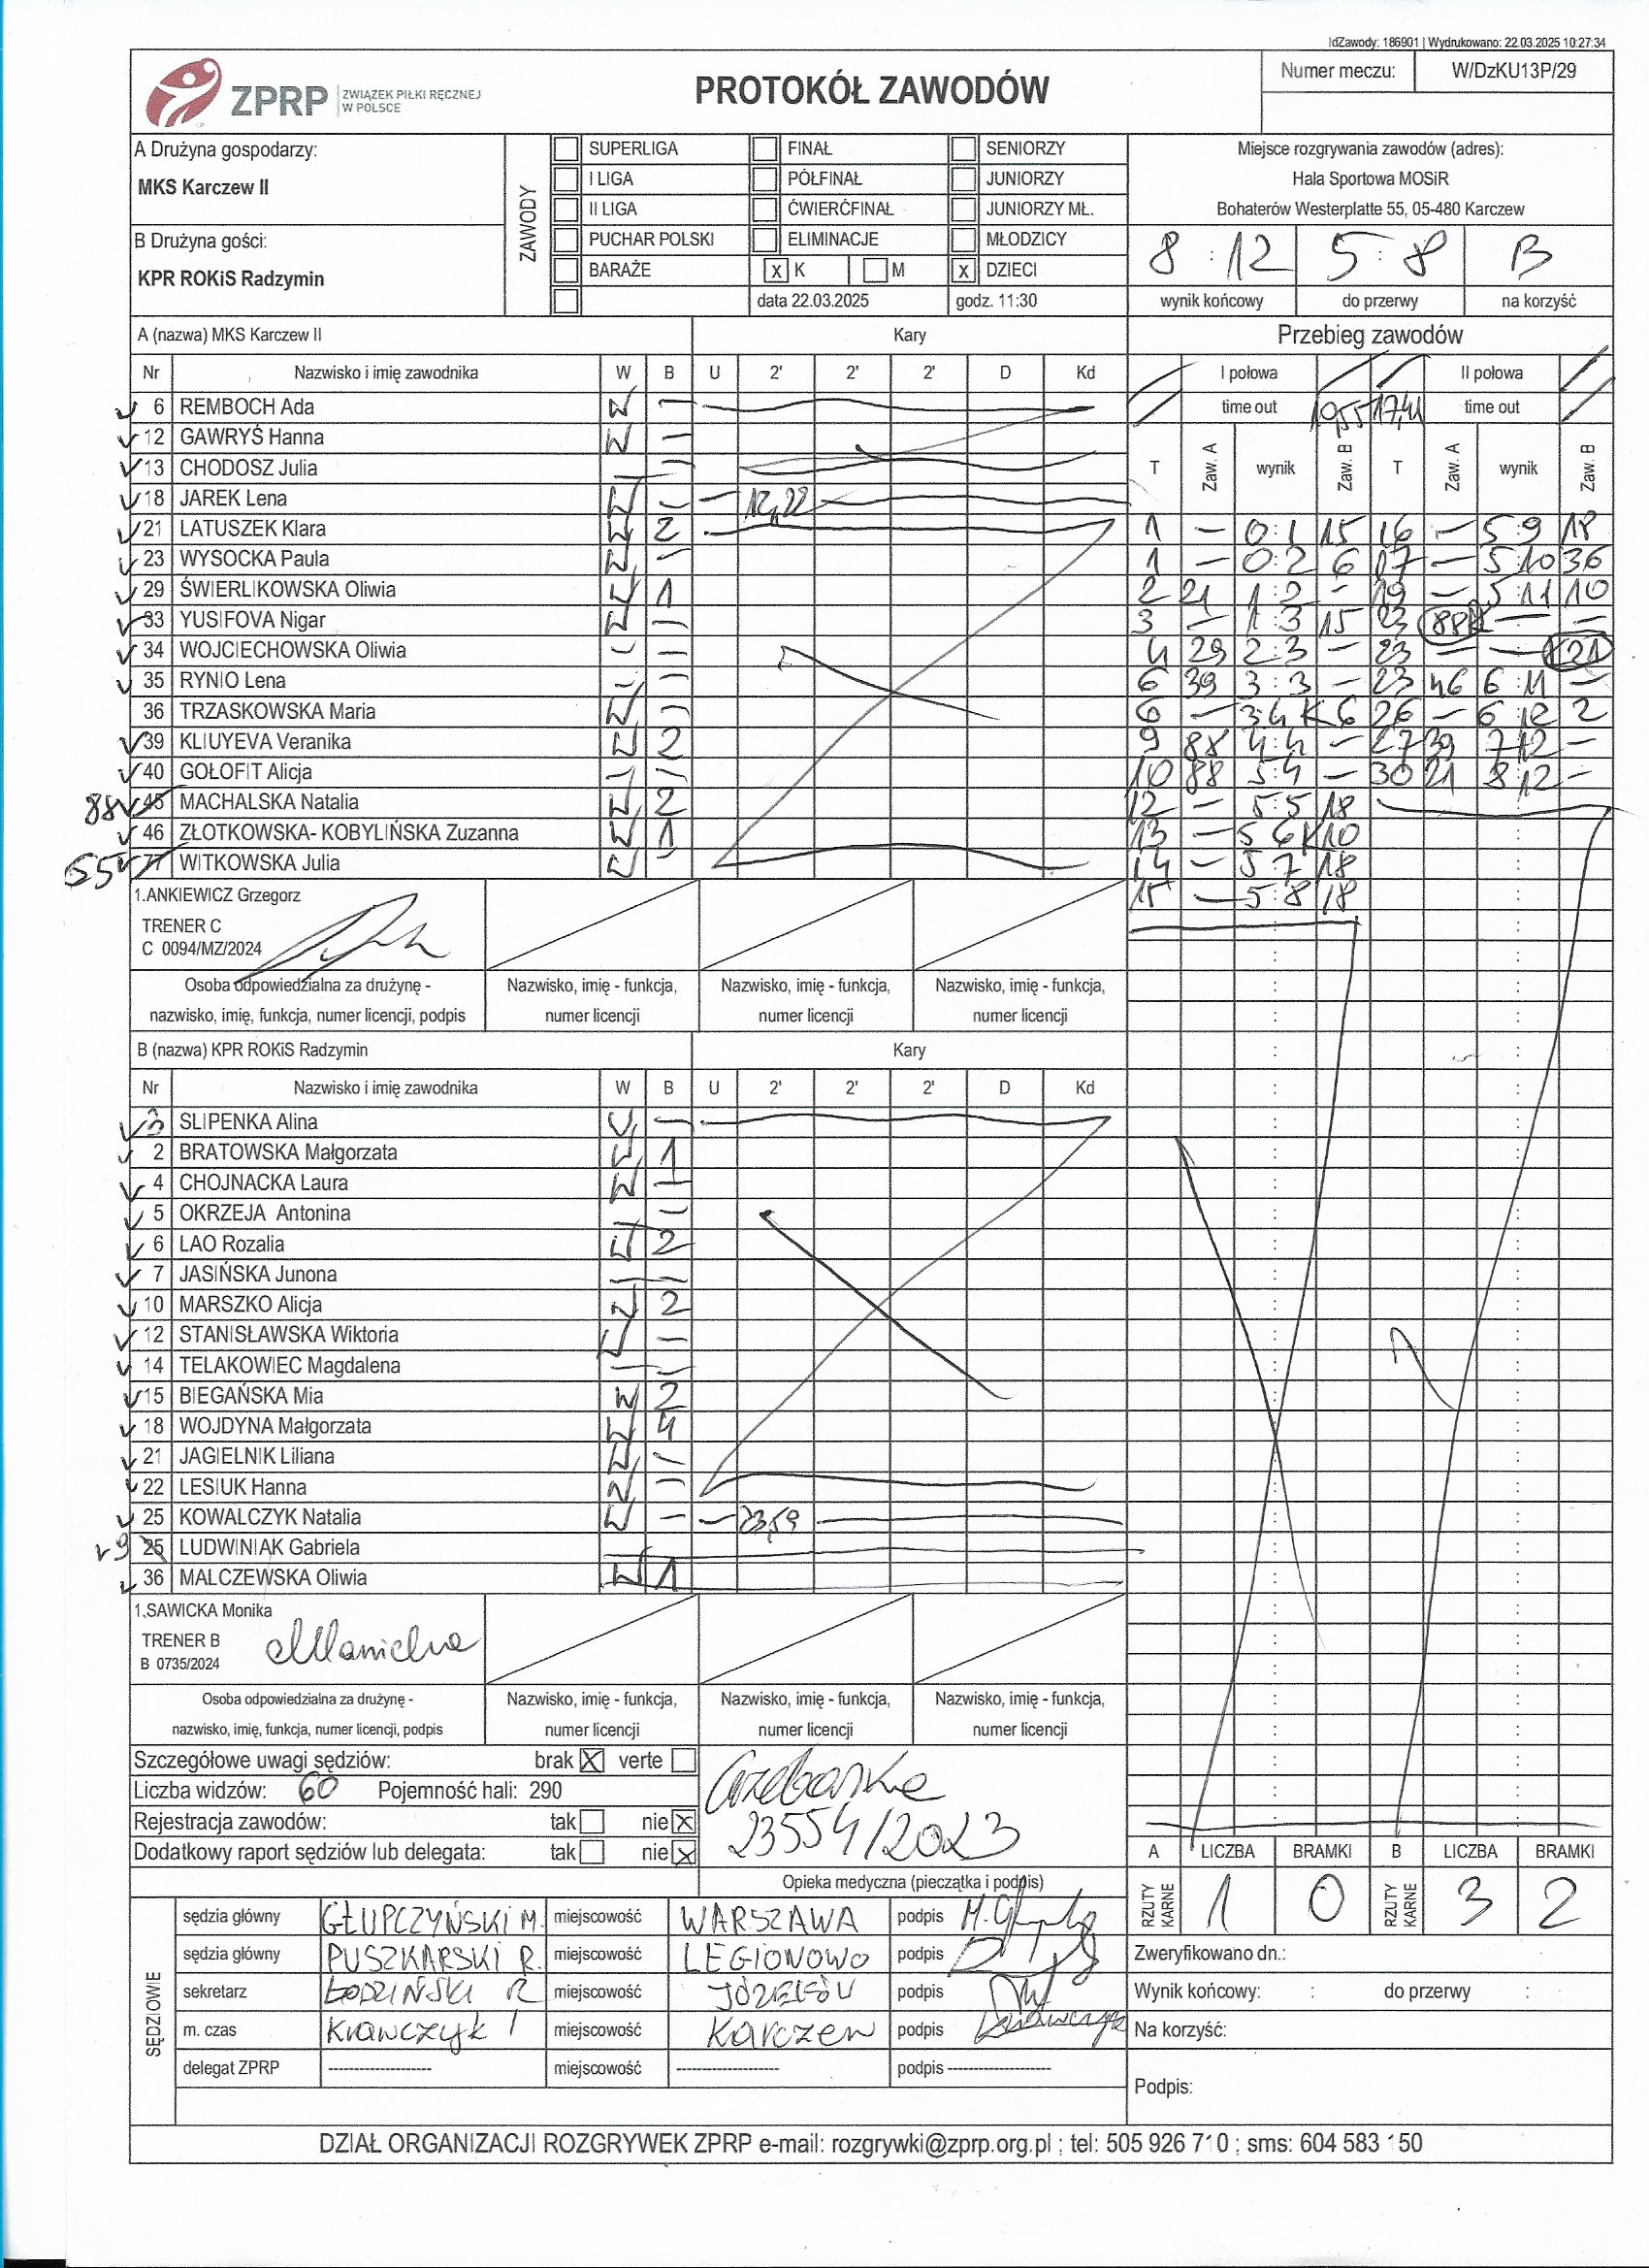 IdZawody: 186901 | Wydrukowano: 22.03.2025 10:27:34
ZPRP ZWIĄZEK PIŁKI RĘCZNEJ W POLSCE
PROTOKÓŁ ZAWODÓW
Numer meczu: W/DzKU13P/29
A Drużyna gospodarzy:
MKS Karczew II
B Drużyna gości:
KPR ROKiS Radzymin
ZAWODY
SUPERLIGA FINAŁ SENIORZY
I LIGA PÓŁFINAŁ JUNIORZY
II LIGA ĆWIERĆFINAŁ JUNIORZY MŁ.
PUCHAR POLSKI ELIMINACJE MŁODZICY
BARAŻE x K M x DZIECI
data 22.03.2025 godz. 11:30
Miejsce rozgrywania zawodów (adres):
Hala Sportowa MOSiR
Bohaterów Westerplatte 55, 05-480 Karczew
8 : 12 5 : 8 B
wynik końcowy do przerwy na korzyść
A (nazwa) MKS Karczew II Kary
Nr Nazwisko i imię zawodnika W B U 2' 2' 2' D Kd
6 REMBOCH Ada W —
12 GAWRYŚ Hanna W —
13 CHODOSZ Julia — —
18 JAREK Lena W — — 12,22
21 LATUSZEK Klara W 2
23 WYSOCKA Paula W —
29 ŚWIERLIKOWSKA Oliwia W 1
33 YUSIFOVA Nigar W —
34 WOJCIECHOWSKA Oliwia — —
35 RYNIO Lena — —
36 TRZASKOWSKA Maria W —
39 KLIUYEVA Veranika W 2
40 GOŁOFIT Alicja — —
88 45 MACHALSKA Natalia W 2
46 ZŁOTKOWSKA- KOBYLIŃSKA Zuzanna W 1
55 77 WITKOWSKA Julia W —
1.ANKIEWICZ Grzegorz
TRENER C
C 0094/MZ/2024
Osoba odpowiedzialna za drużynę - nazwisko, imię, funkcja, numer licencji, podpis
Nazwisko, imię - funkcja, numer licencji
Nazwisko, imię - funkcja, numer licencji
Nazwisko, imię - funkcja, numer licencji
B (nazwa) KPR ROKiS Radzymin Kary
Nr Nazwisko i imię zawodnika W B U 2' 2' 2' D Kd
3 SLIPENKA Alina W —
2 BRATOWSKA Małgorzata W 1
4 CHOJNACKA Laura W —
5 OKRZEJA Antonina — —
6 LAO Rozalia W 2
7 JASIŃSKA Junona — —
10 MARSZKO Alicja W 2
12 STANISŁAWSKA Wiktoria W —
14 TELAKOWIEC Magdalena — —
15 BIEGAŃSKA Mia W 2
18 WOJDYNA Małgorzata W 4
21 JAGIELNIK Liliana W —
22 LESIUK Hanna W —
25 KOWALCZYK Natalia W — — 23,59
9 25 LUDWINIAK Gabriela
36 MALCZEWSKA Oliwia W 1
1.SAWICKA Monika
TRENER B
B 0735/2024
Osoba odpowiedzialna za drużynę - nazwisko, imię, funkcja, numer licencji, podpis
Nazwisko, imię - funkcja, numer licencji
Nazwisko, imię - funkcja, numer licencji
Nazwisko, imię - funkcja, numer licencji
Przebieg zawodów
I połowa II połowa
time out 10,55 17,41 time out
T Zaw. A wynik Zaw. B T Zaw. A wynik Zaw. B
1 — 0:1 15 16 — 5:9 18
1 — 0:2 6 17 — 5:10 36
2 21 1:2 — 19 — 5:11 10
3 — 1:3 15 23 88K — —
4 29 2:3 — 23 — — K21
6 39 3:3 — 23 46 6:11 —
6 — 3:4 K6 26 — 6:12 2
9 88 4:4 — 27 39 7:12 —
10 88 5:4 — 30 21 8:12 —
12 — 5:5 18
13 — 5:6 K10
14 — 5:7 18
15 — 5:8 18
Szczegółowe uwagi sędziów: brak X verte
Liczba widzów: 60 Pojemność hali: 290
Rejestracja zawodów: tak nie x
Dodatkowy raport sędziów lub delegata: tak nie x
23554/2023
Opieka medyczna (pieczątka i podpis)
A LICZBA BRAMKI B LICZBA BRAMKI
RZUTY KARNE 1 0 RZUTY KARNE 3 2
SĘDZIOWIE
sędzia główny GŁUPCZYŃSKI M. miejscowość WARSZAWA podpis
sędzia główny PUSZKARSKI R. miejscowość LEGIONOWO podpis
sekretarz ŁODZIŃSKI R miejscowość JÓZEFÓW podpis
m. czas Krawczyk miejscowość Karczew podpis
delegat ZPRP ------------------- miejscowość ------------------- podpis -------------------
Zweryfikowano dn.:
Wynik końcowy: : do przerwy :
Na korzyść:
Podpis:
DZIAŁ ORGANIZACJI ROZGRYWEK ZPRP e-mail: rozgrywki@zprp.org.pl ; tel: 505 926 710 ; sms: 604 583 150